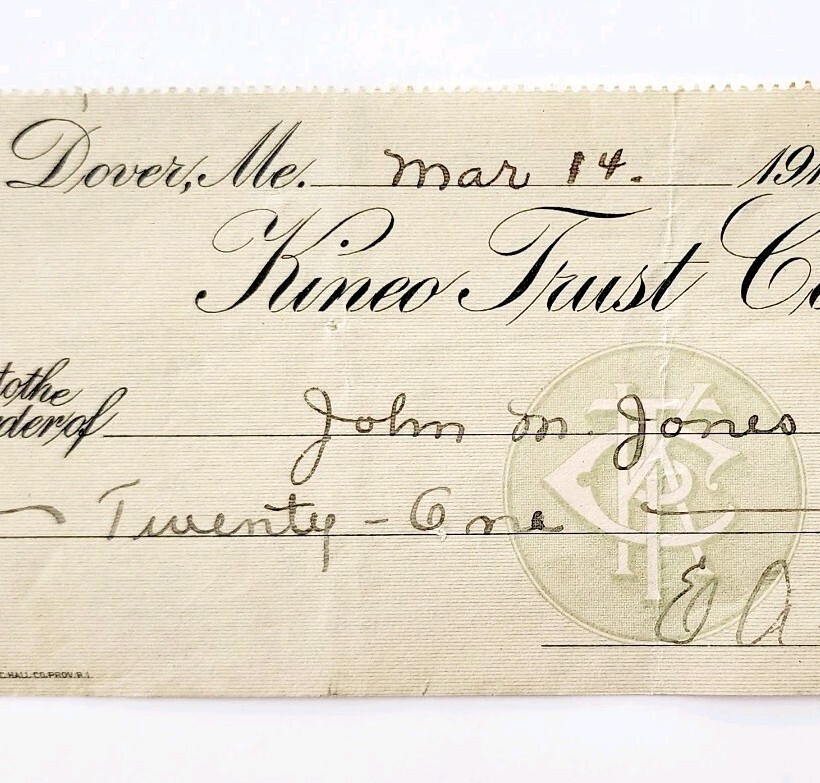 Dover, Me. Mar 14. 191
Kineo Trust Co
to the
rder of John M. Jones
Twenty-One
E A
C. HALL CO. PROV. R.I.